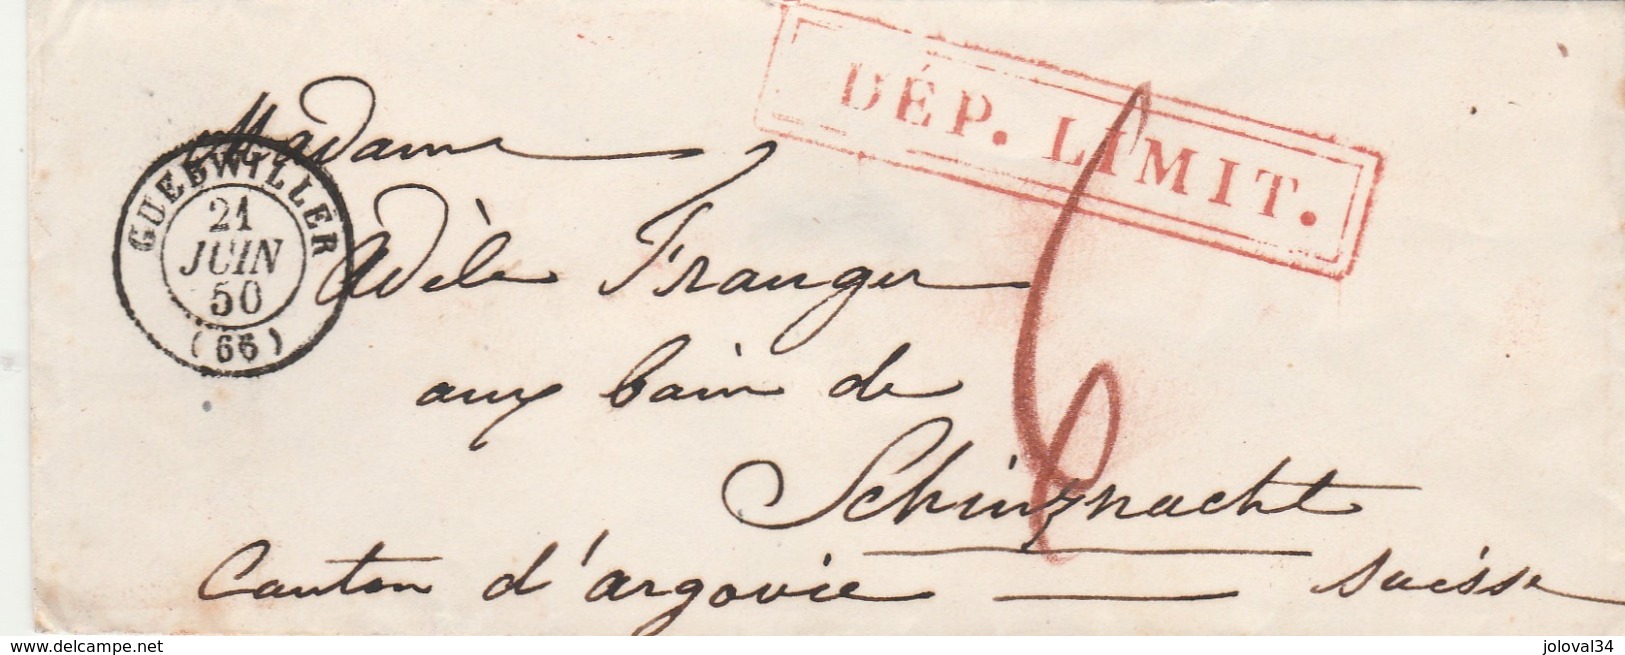 DÉP. LIMIT.
GUEBWILLER
21
JUIN
50
(66)
Madame
Adèle Franger
aux bain de
Schinznacht
Canton d'argovie — suisse
6
delcampe.net
joloval34